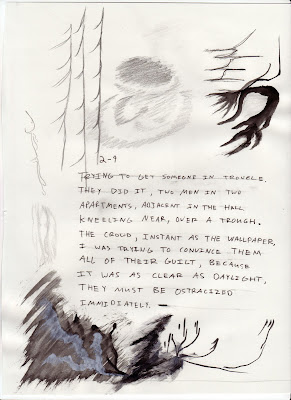 2-9
TRYING TO GET SOMEONE IN TROUBLE,
THEY DID IT, TWO MEN IN TWO
APARTMENTS, ADJACENT IN THE HALL
KNEELING NEAR, OVER A TROUGH.
THE CROWD, INSTANT AS THE WALLPAPER,
I WAS TRYING TO CONVINCE THEM
ALL OF THEIR GUILT, BECAUSE
IT WAS AS CLEAR AS DAYLIGHT,
THEY MUST BE OSTRACIZED
IMMIDIATELY. —